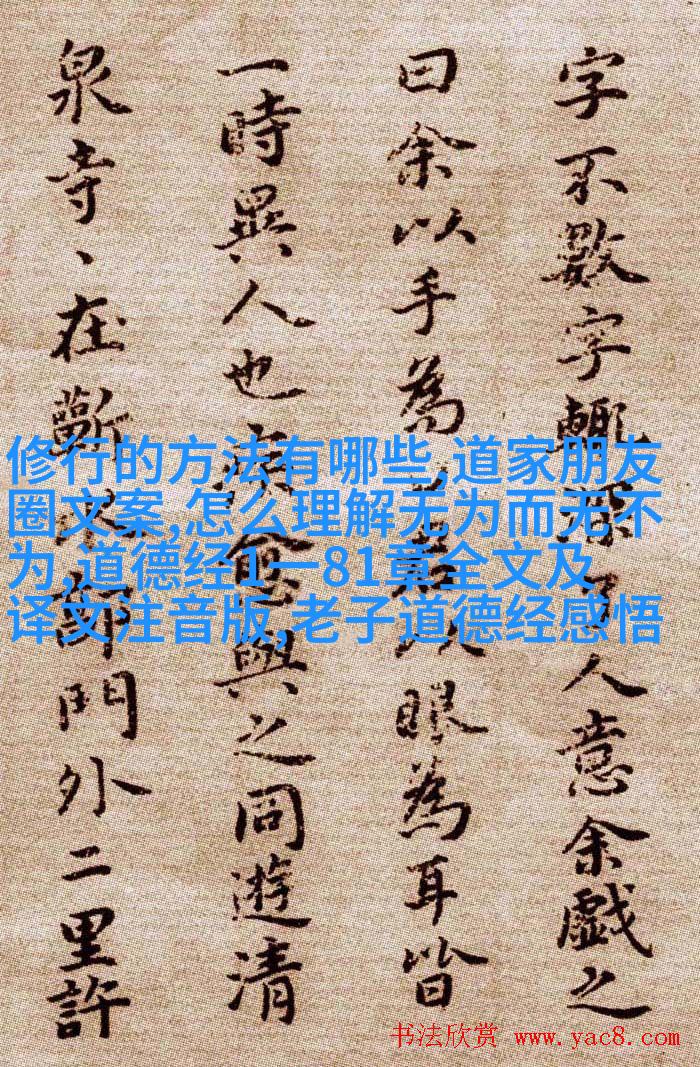 字不數字輒了人意余戲之
曰余以手為君以眼為耳皆
一時異人也疾愈與之同遊清
泉寺、在蘄水郭門外二里許
修行的方法有哪些,道家朋友
圈文案,怎么理解无为而无不
为,道德经1一81章全文及
译文注音版,老子道德经感悟
书法欣赏 www.yac8.com